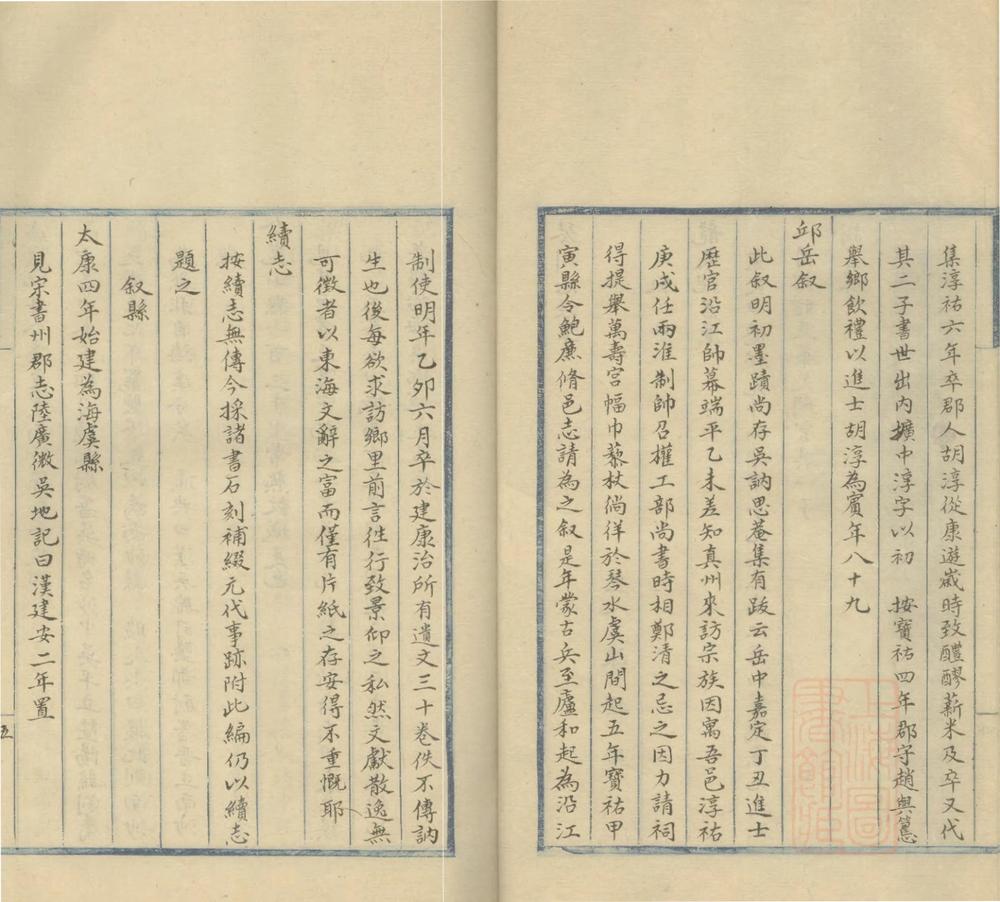 集淳祐六年卒郡人胡淳從康遊歲時致醴醪薪米及卒又代
其二子書世出内擴中淳字以初　按寶祐四年郡守趙與𥲅
舉鄉飲禮以進士胡淳為賓年八十九
邱岳叙
此叙明初墨蹟尚存吳訥思菴集有跋云岳中嘉定丁丑進士
歷官沿江帥幕端平乙未差知真州來訪宗族因寓吾邑淳祐
庚戌任兩淮制帥召權工部尚書時相鄭清之忌之因力請祠
得提舉萬壽宮幅巾藜杖倘徉於琴水虞山間起五年寶祐甲
寅縣令鮑廉脩邑志請為之叙是年蒙古兵至廬和起為沿江
制使明年乙夘六月卒於建康治所有遺文三十卷佚不傳訥
生也後每欲求訪鄉里前言徃行致景仰之私然文獻散逸無
可徵者以東海文辭之富而僅有片紙之存安得不重慨耶
續志
按續志無傳今採諸書石刻補綴元代事跡附此編仍以續志
題之
叙縣
太康四年始建為海虞縣
見宋書州郡志陸廣微吳地記曰漢建安二年置
五